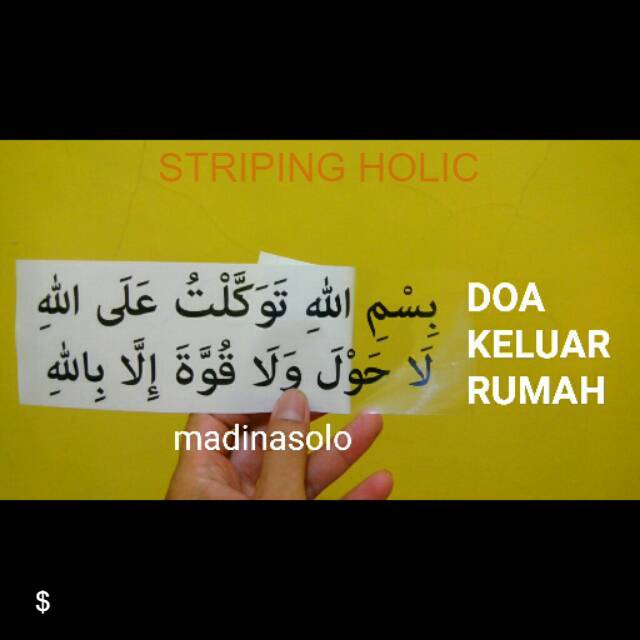 STRIPING HOLIC
بِسْمِ اللهِ تَوَكَّلْتُ عَلَى اللهِ
لَا حَوْلَ وَلَا قُوَّةَ إِلَّا بِاللهِ
DOA
KELUAR
RUMAH
madinasolo
$